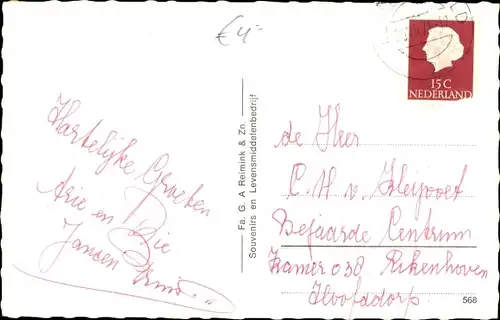 €4-
15 C
NEDERLAND
Hartelijke Groeten
Arie en
Jansen
Fa. G. A Reimink & Zn.
Souvenirs en Levensmiddelenbedrijf
de Hker
C. H. v. Kleipoet
Bejaarde Centrum
Kamer 038 Rikenhoven
Hoofddorp
568